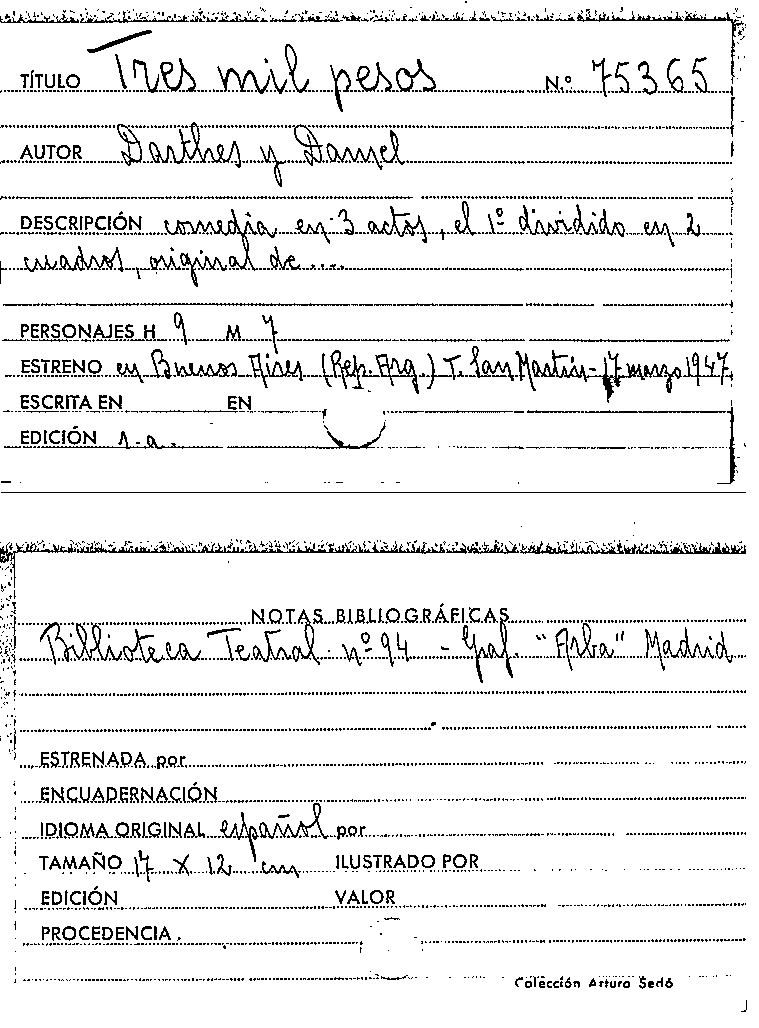 TÍTULO Tres mil pesos N.º 75365
AUTOR Darthes y Damel
DESCRIPCIÓN comedia en 3 actos, el 1º dividido en 2
cuadros, original de....
PERSONAJES H 9 M 7
ESTRENO en Buenos Aires (Rep. Arg.) T. San Martín-17 marzo 1947
ESCRITA EN EN
EDICIÓN 1.a.
NOTAS BIBLIOGRÁFICAS
Biblioteca Teatral nº 94 - Graf. "Arba" Madrid
ESTRENADA por
ENCUADERNACIÓN
IDIOMA ORIGINAL español por
TAMAÑO 17 X 12 cm ILUSTRADO POR
EDICIÓN VALOR
PROCEDENCIA.
Colección Arturo Sedó